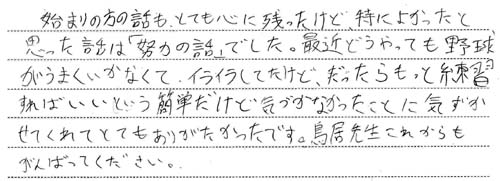 始まりの方の話も、とても心に残ったけど特によかったと
思った話は「努力の話」でした。最近どうやっても野球
がうまくいかなくて、イライラしてたけど、だったらもっと練習
すればいいという簡単だけど気づかなかったことに気ずか
せてくれてとてもありがたかったです。鳥居先生これからも
がんばってください。